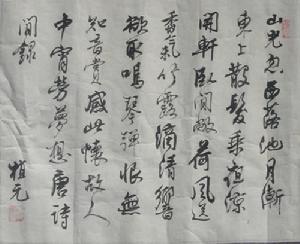 山光忽西落池月漸
東上散髮乘夜涼
開軒臥閒敞荷風送
香氣竹露滴清響
欲取鳴琴彈恨無
知音賞感此懷故人
中宵勞夢想唐詩
閒錄 植元